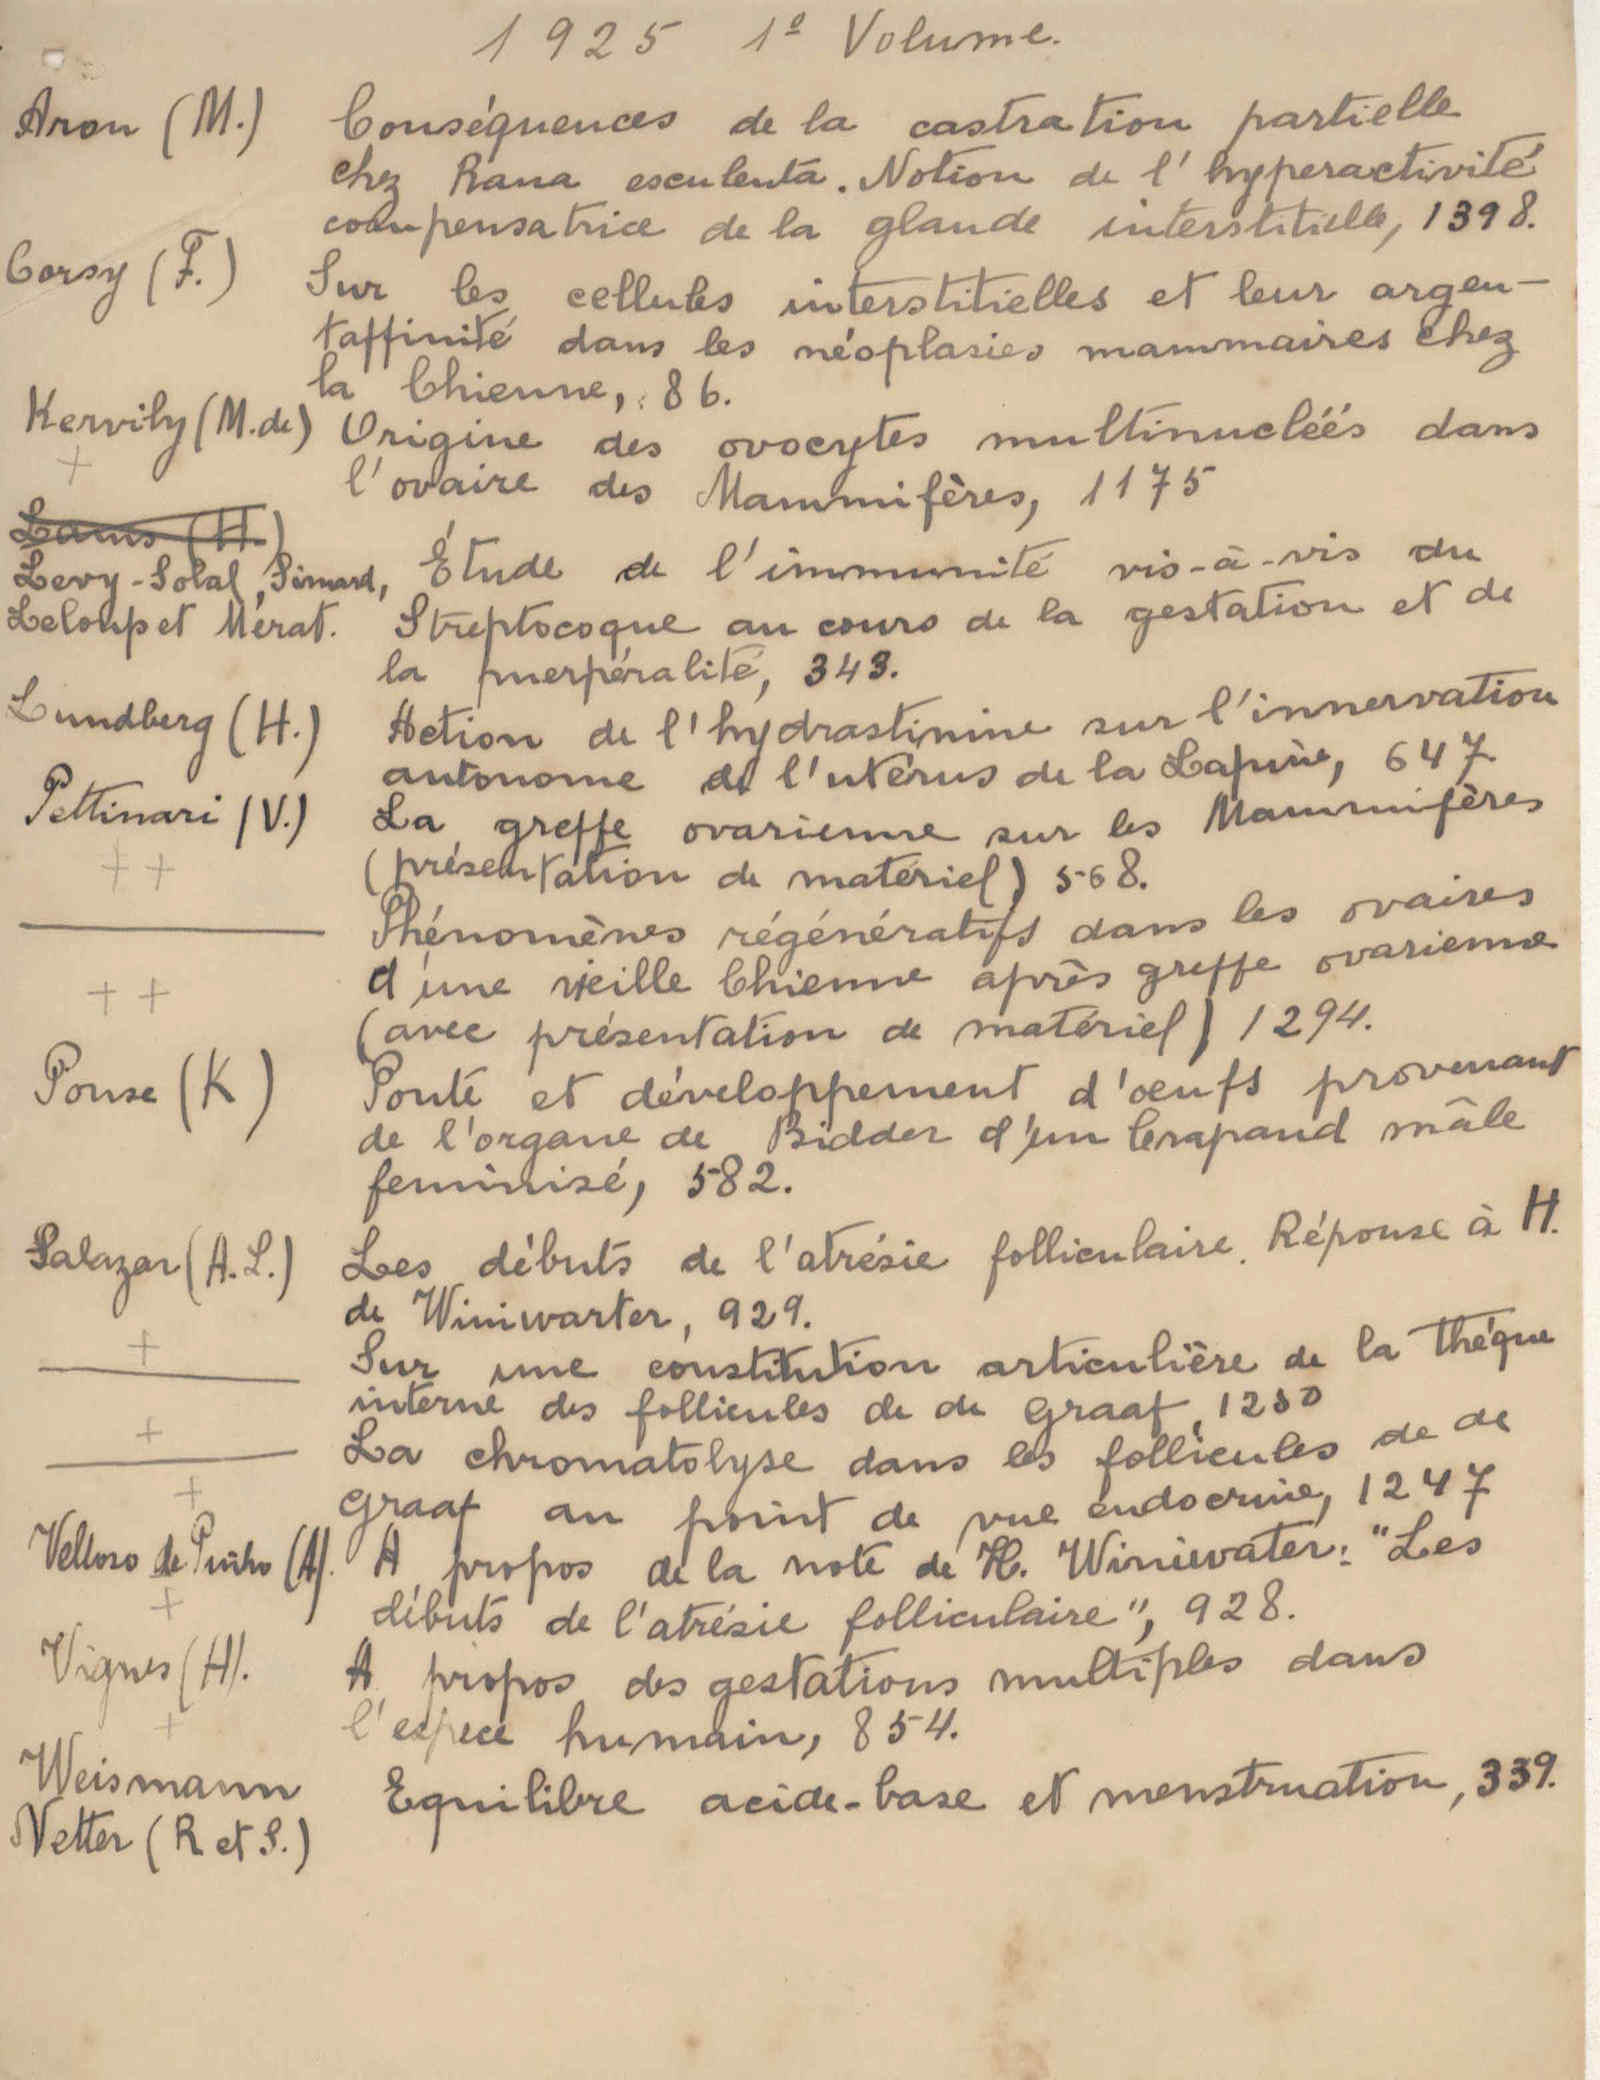 1925 1º Volume.
Aron (M.) Conséquences de la castration partielle
chez Rana esculenta. Notion de l'hyperactivité
compensatrice de la glande interstitielle, 1398.
Corsy (F.) Sur les cellules interstitielles et leur argen-
taffinité dans les néoplasies mammaires chez
la Chienne, 86.
Kervily (M. de) Origine des ovocytes multinucléés dans
+ l'ovaire des Mammifères, 1175
Lams (H.)
Levy-Solal, Simard, Étude de l'immunité vis-à-vis du
Leloup et Mérat. Streptocoque au cours de la gestation et de
la puerpéralité, 343.
Lundberg (H.) Action de l'hydrastinine sur l'innervation
autonome de l'utérus de la Lapine, 647
Pettinari (V.) La greffe ovarienne sur les Mammifères
++ (présentation de matériel) 568.
Phénomènes régénératifs dans les ovaires
++ d'une vieille Chienne après greffe ovarienne
(avec présentation de matériel) 1294.
Ponse (K) Ponte et développement d'oeufs provenant
de l'organe de Bidder d'un Crapaud mâle
feminisé, 582.
Salazar (A. L.) Les débuts de l'atrésie folliculaire. Réponse à H.
de Winiwarter, 929.
+ Sur une constitution articulière de la thèque
interne des follicules de de Graaf,
+ La chromatolyse dans les follicules de de
+ Graaf au point de vue endocrine, 1247
Velloso de Pinho (A). A propos de la note de H. Winiwater: "Les
+ débuts de l'atrésie folliculaire", 928.
Vignes (H). A propos des gestations multiples dans
+ l'espece humain, 854.
Weismann Equilibre acide-base et menstruation, 339.
Netter (R et S.)